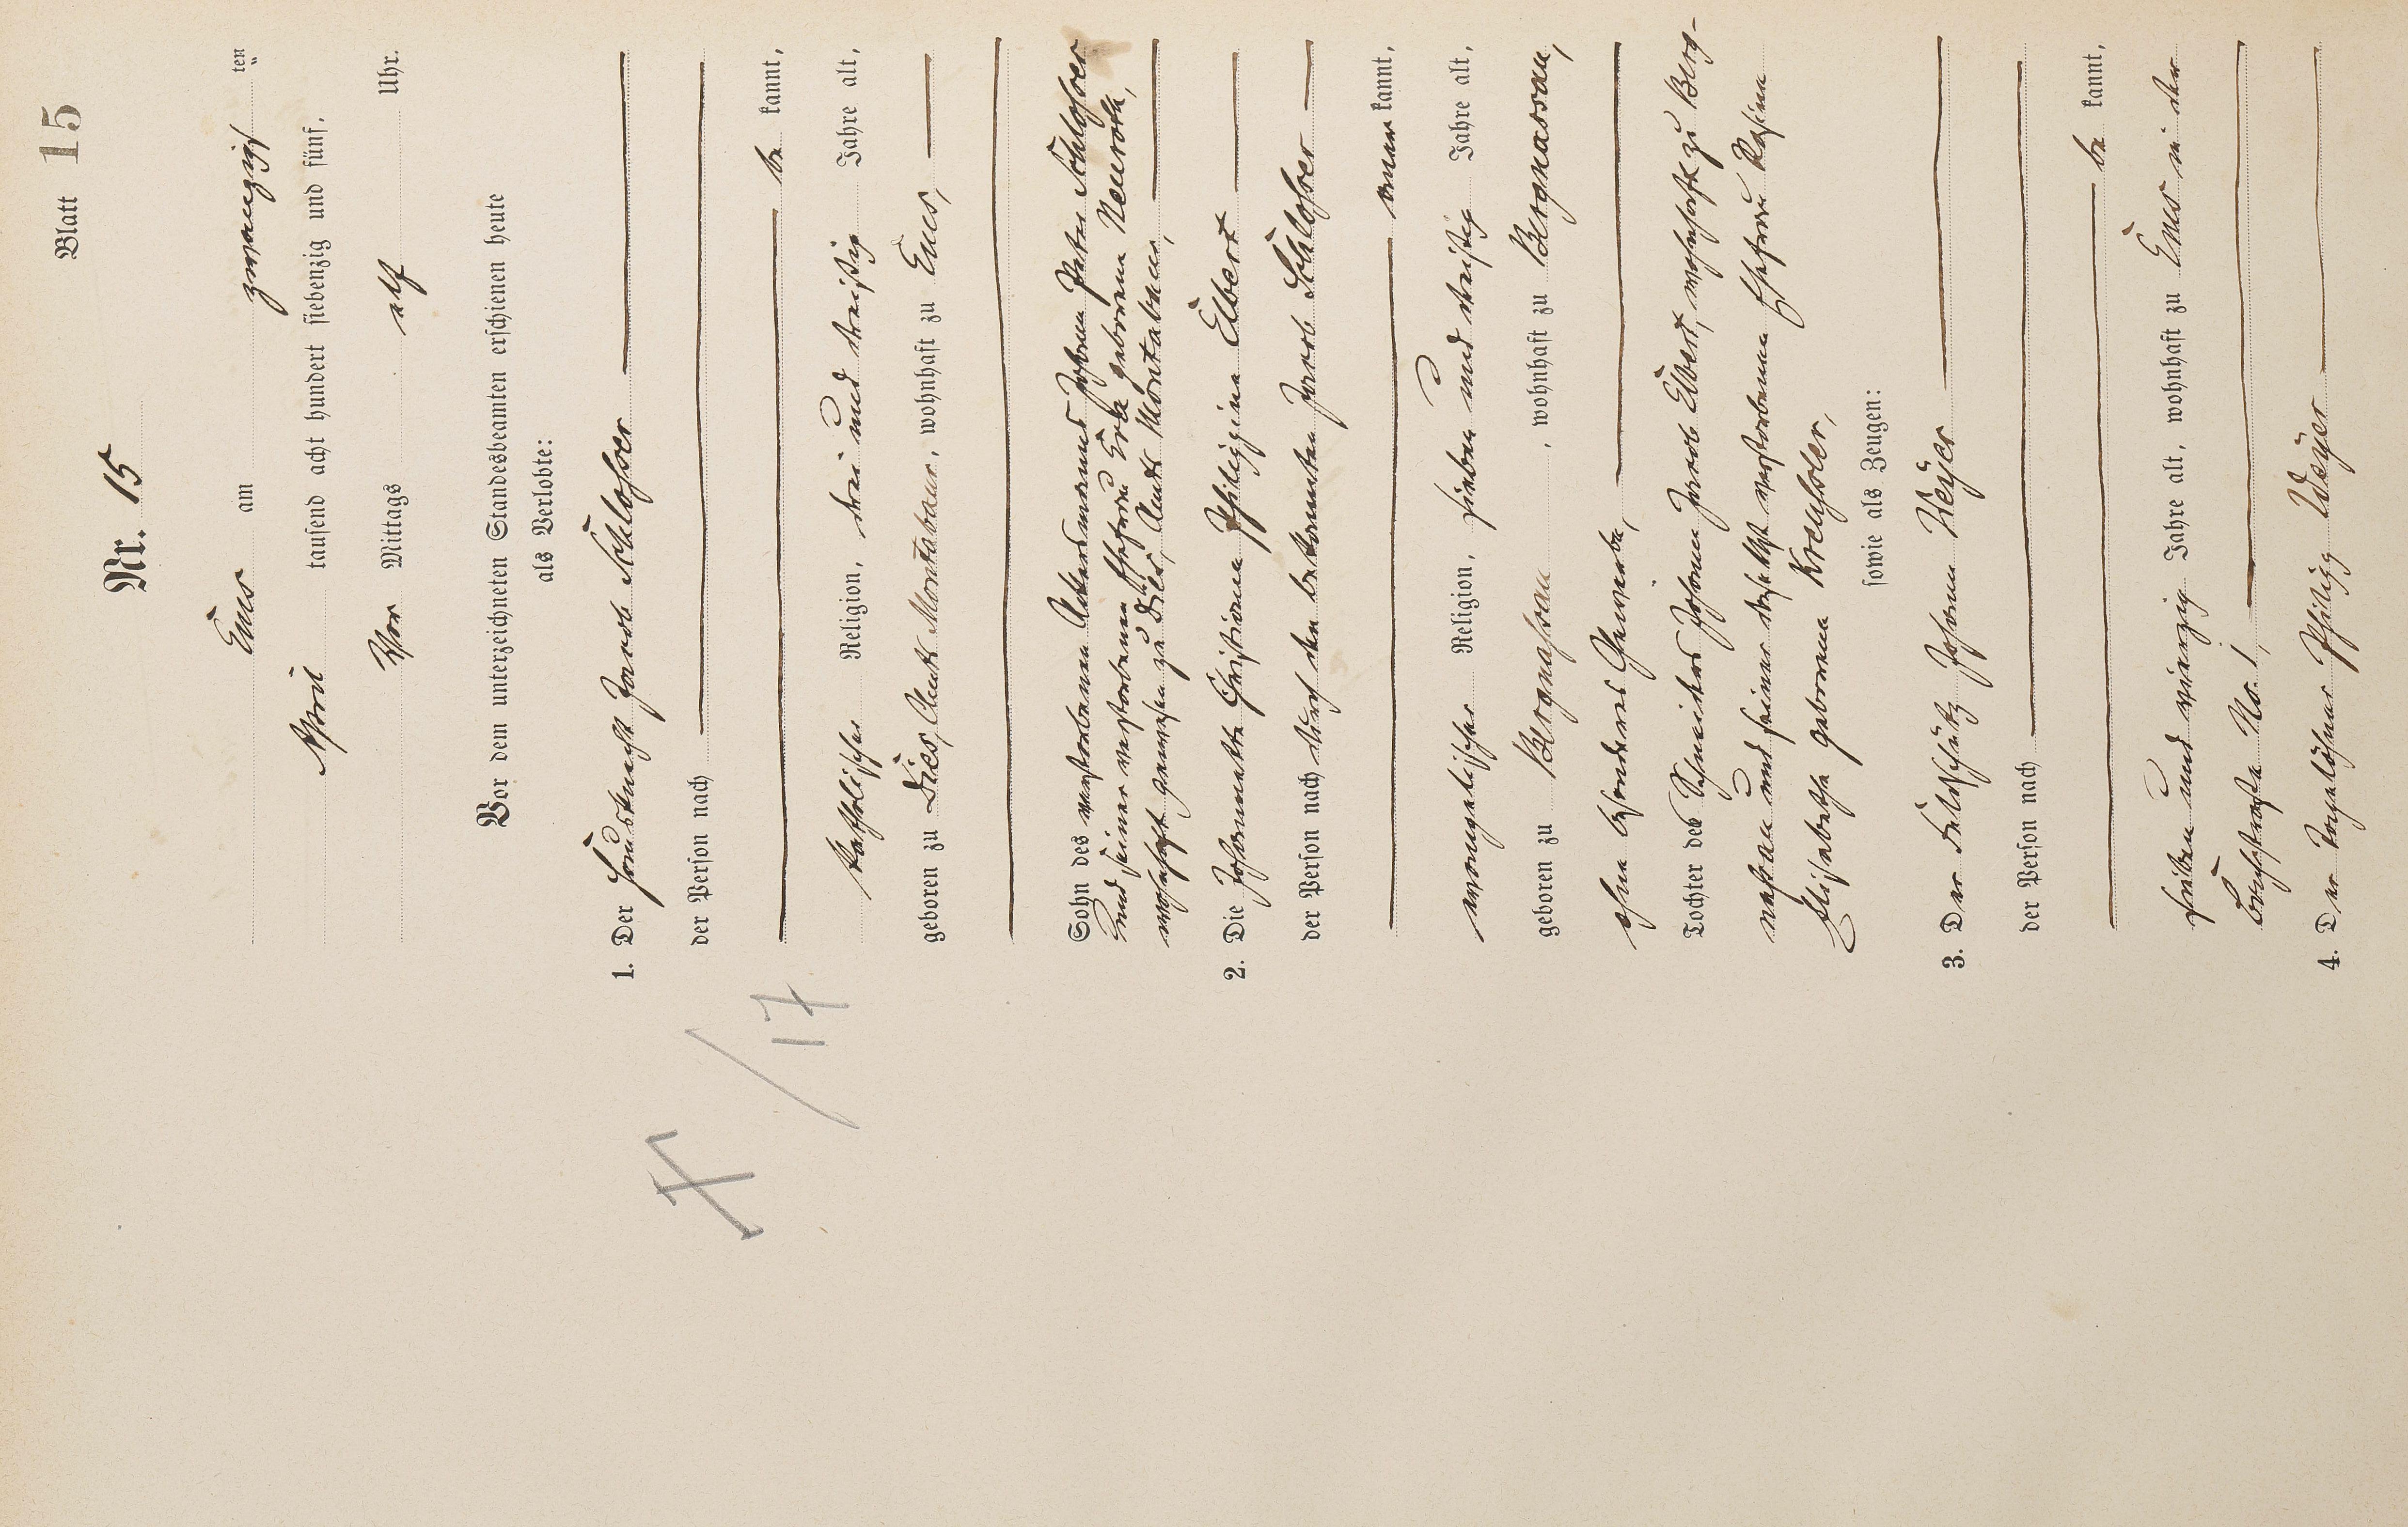 Blatt 15
Nr. 15
Ems am zwanzigsten
April tausend acht hundert siebenzig und fünf,
Vor Mittags elf Uhr.
Vor dem unterzeichneten Standesbeamten erschienen heute
als Verlobte:
1. Der Hausknecht Jacob Schlosser
der Person nach
be kannt,
katholischer Religion, drei und dreißig Jahre alt,
geboren zu Dies, Amts Montabaur, wohnhaft zu Ems,
Sohn des verstorbenen Ackersmannes Johann Peter Schlosser
und seiner verstorbenen Ehefrau Eva geborene Neuroth,
wohnhaft gewesen zu Dies, Amts Montabaur,
2. Die Johannette Christiane Philippine Elbert
der Person nach durch den bekannten Jacob Schlosser
aner kannt,
evangelischer Religion, sieben und dreißig Jahre alt,
geboren zu Bergnassau, wohnhaft zu Bergnassau,
ohne besonderes Gewerbe,
Tochter des Schneiders Johann Jacob Elbert, wohnhaft zu Berg-
nassau und seiner daselbst verstorbenen Ehefrau
Elisabetha geborene
sowie als Zeugen:
3. Der Feldschütz Johann Weyer
der Person nach
be kannt,
sieben und vierzig Jahre alt, wohnhaft zu Ems in der
No. 1,
4. Der Tagelöhner Philipp Weyer